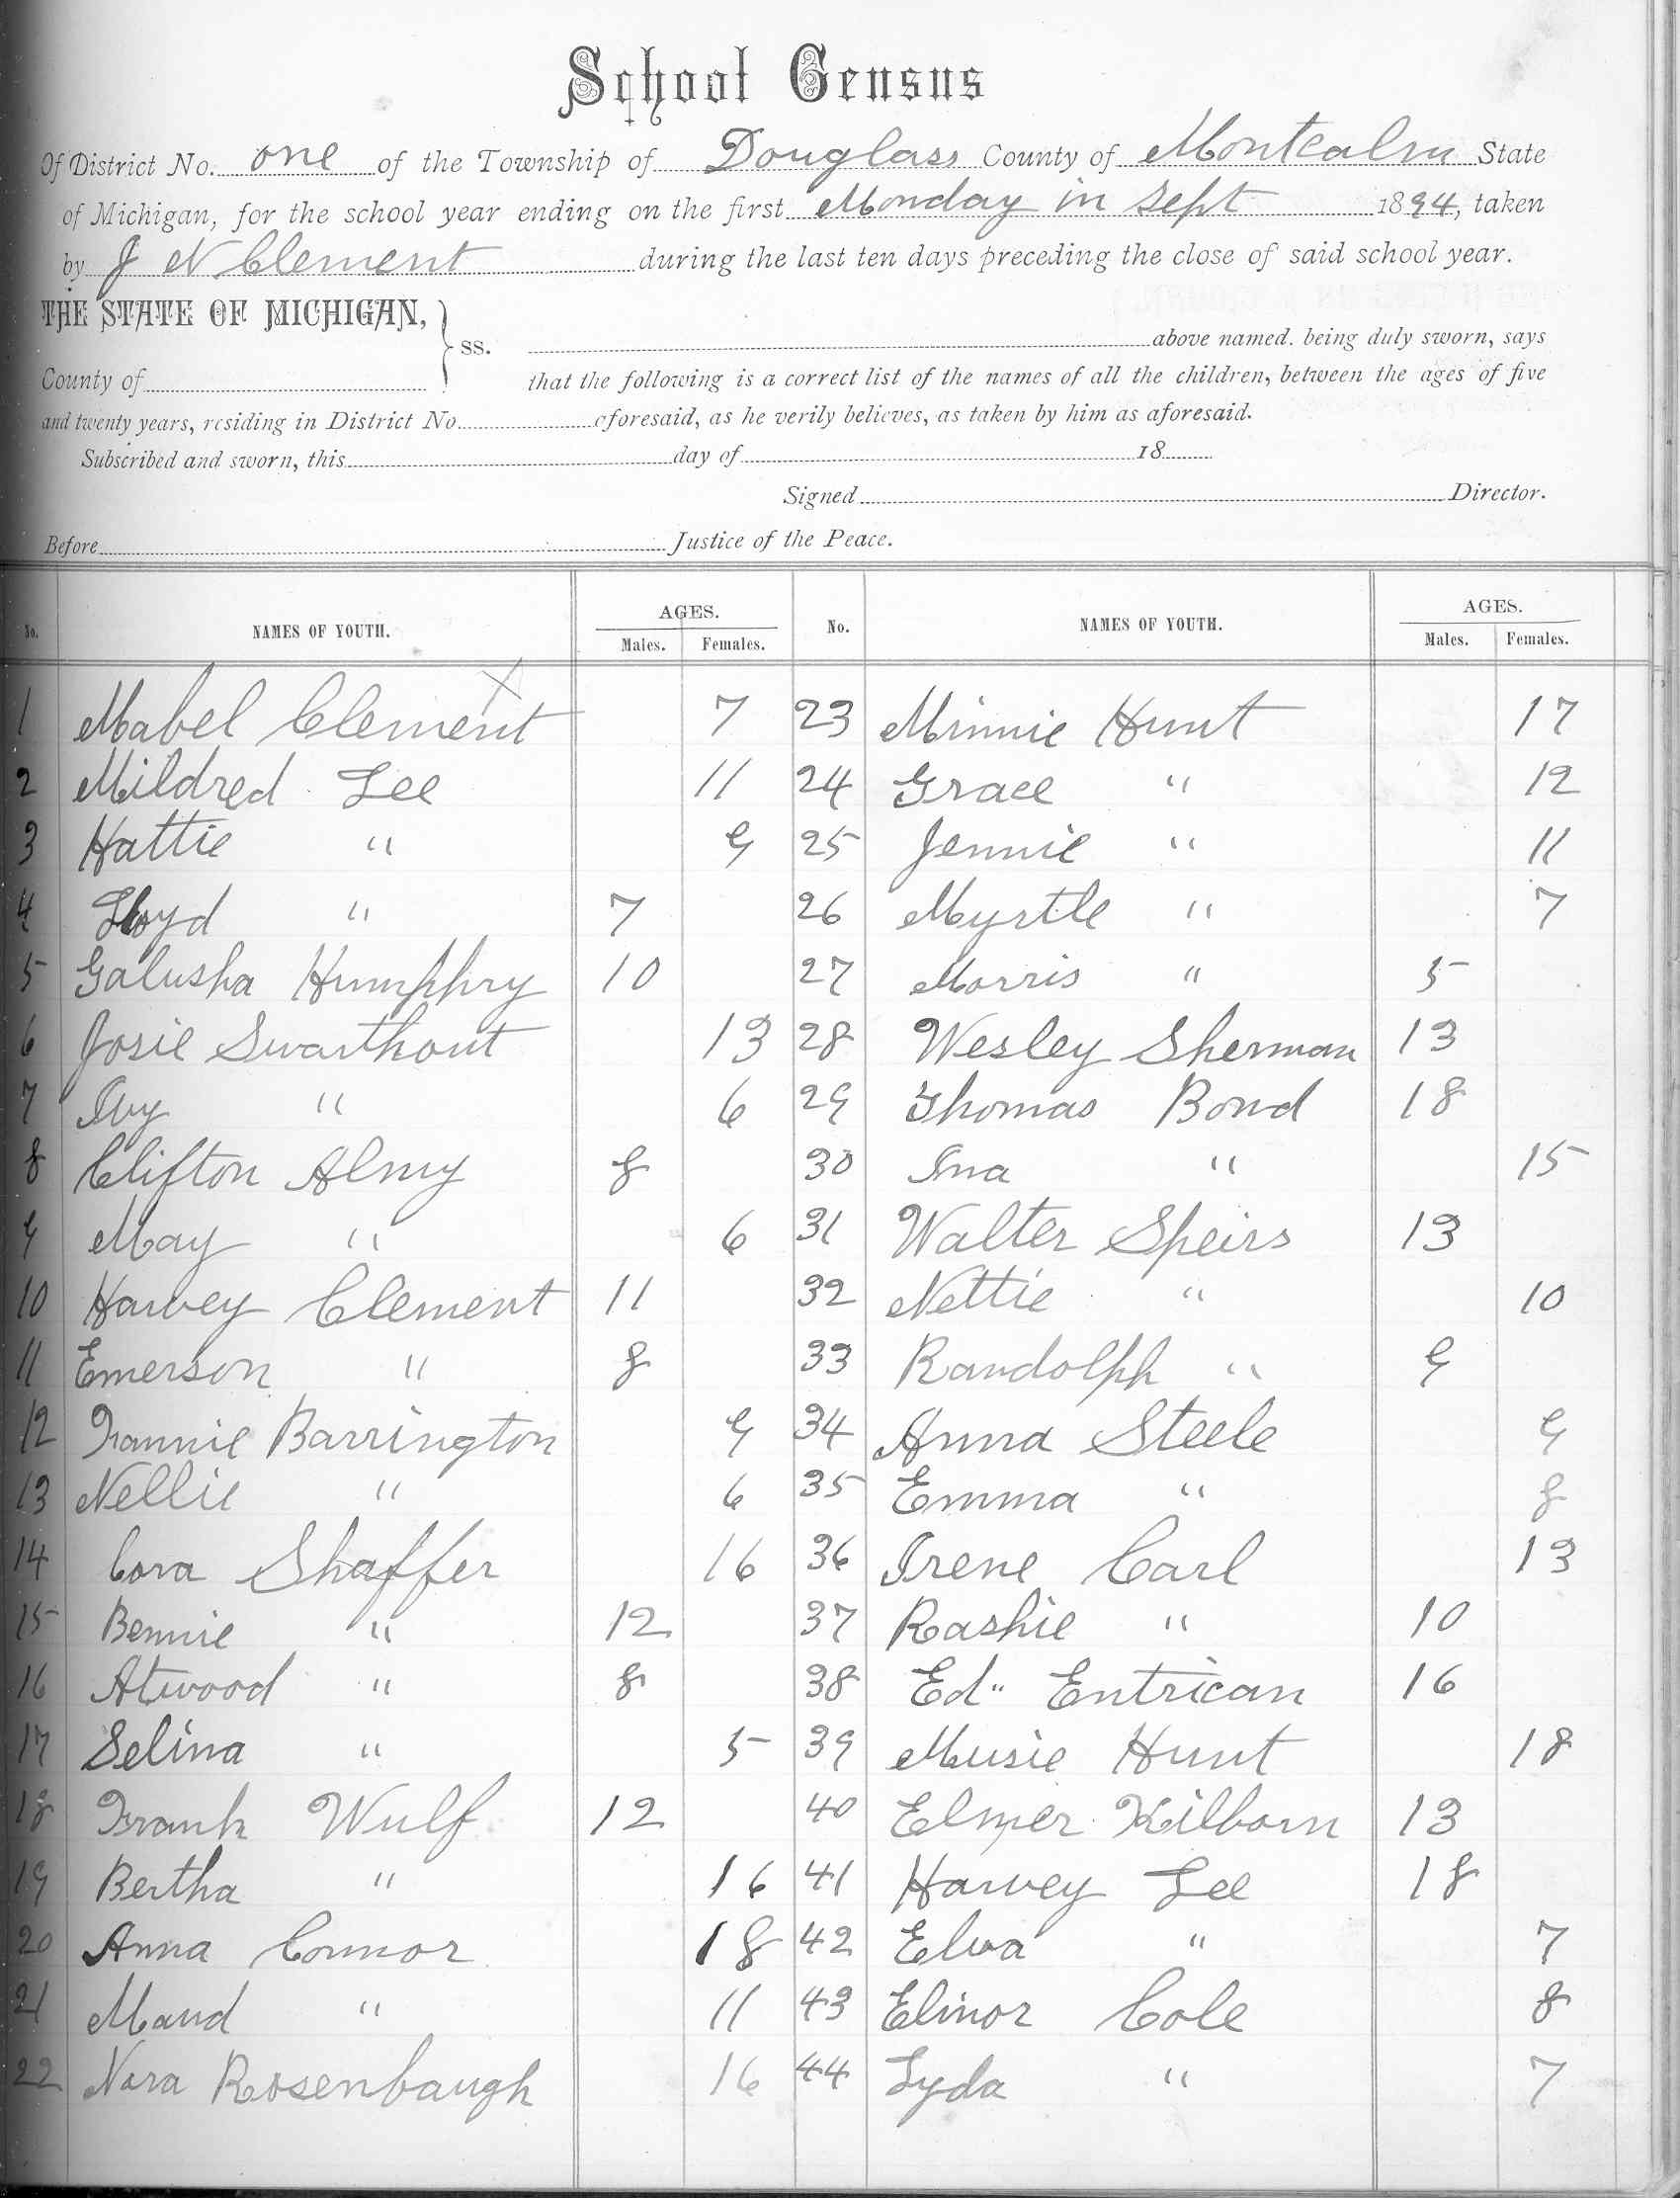 School Census
Of District No. one of the Township of Douglass County of Montcalm State
of Michigan, for the school year ending on the first Monday in Sept 1894, taken
by J N Clement during the last ten days preceding the close of said school year.
THE STATE OF MICHIGAN, } ss. above named. being duly sworn, says
County of that the following is a correct list of the names of all the children, between the ages of five
and twenty years, residing in District No. aforesaid, as he verily believes, as taken by him as aforesaid.
Subscribed and sworn, this day of 18
Signed Director.
Before Justice of the Peace.
No. NAMES OF YOUTH. AGES. Males. Females. No. NAMES OF YOUTH. AGES. Males. Females.
1 Mabel Clement X 7 23 Minnie Hunt 17
2 Mildred Lee 11 24 Grace " 12
3 Hattie " 9 25 Jennie " 11
4 Lloyd " 7 26 Myrtle " 7
5 Galusha Humphry 10 27 Morris " 5
6 Josie Swarthout 13 28 Wesley Sherman 13
7 Ivy " 6 29 Thomas Bond 18
8 Clifton Almy 8 30 Ina " 15
9 May " 6 31 Walter Speirs 13
10 Harvey Clement 11 32 Nettie " 10
11 Emerson " 8 33 Randolph " 9
12 Frannie Barrington 9 34 Anna Steele 9
13 Nellie " 6 35 Emma " 8
14 Cora Shaffer 16 36 Irene Carl 13
15 Bennie " 12 37 Rashie " 10
16 Atwood " 8 38 Ed" Entrican 16
17 Selina " 5 39 Musie Hunt 18
18 Frank Wulf 12 40 Elmer Kilborn 13
19 Bertha " 16 41 Harvey Lee 18
20 Anna Connor 18 42 Elva " 7
21 Maud " 11 43 Elinor Cole 8
22 Nora Rosenbaugh 16 44 Lyda " 7